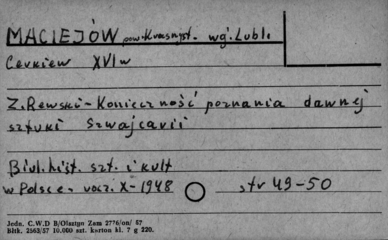 MACIEJÓW pow. Krasnyst. wg. Lubl.
Cerkiew XVI w
Z. Rewski - Konieczność poznania dawnej
sztuki Szwajcarii
Biul. hist. szt. i kult
w Polsce - rocz. X - 1948 str 49-50
Jedn. C.W.D B/Olsztyn Zam 2776/on/ 57
Bltk. 2563/57 10.000 szt. karton kl. 7 g 220.